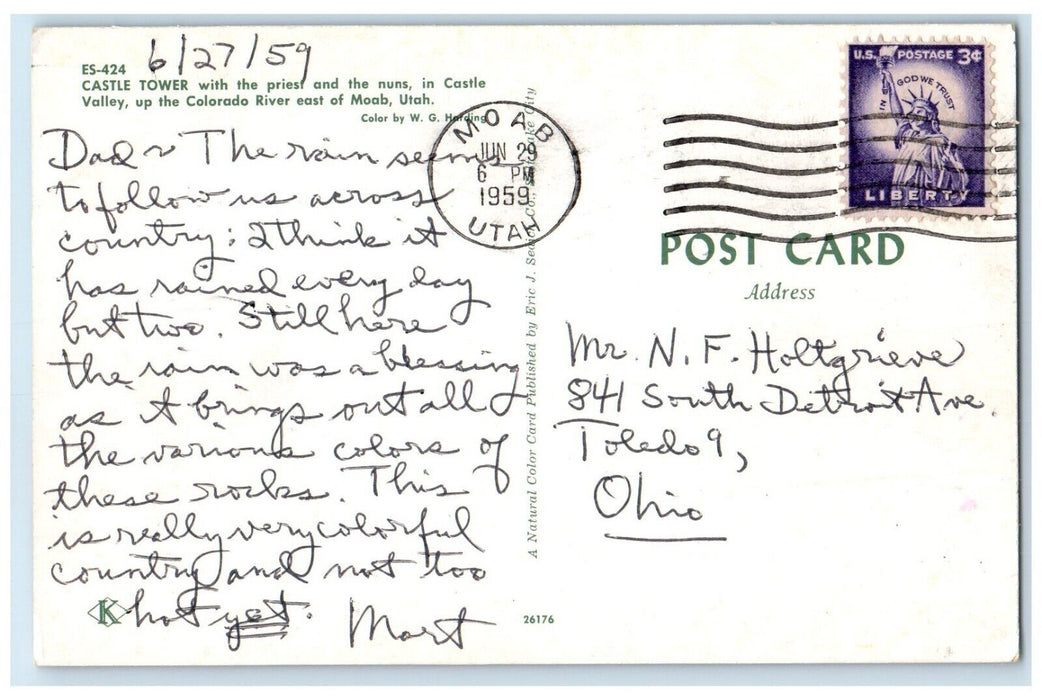 6/27/59
ES-424
CASTLE TOWER with the priest and the nuns, in Castle
Valley, up the Colorado River east of Moab, Utah.
Color by W. G. Harding
Dad ~ The rain seems
to follow us across
country; I think it
has rained every day
but two. Still here
the rain was a blessing
as it brings out all
the various colors of
these rocks. This
is really very colorful
country and not too
hot yet.
Mart
K
26176
A Natural Color Card Published by Eric J. Seaich Co., Salt Lake City
MOAB
JUN 29
6 PM
1959
UTAH
U.S. POSTAGE 3¢
IN GOD WE TRUST
LIBERTY
POST CARD
Address
Mr. N. F. Holtgrieve
841 South Detroit Ave.
Toledo 9,
Ohio